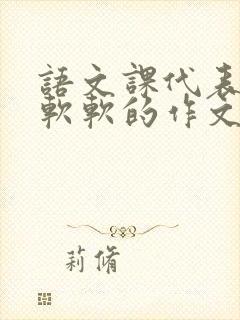 語文課代表
軟軟的作文
莉脩